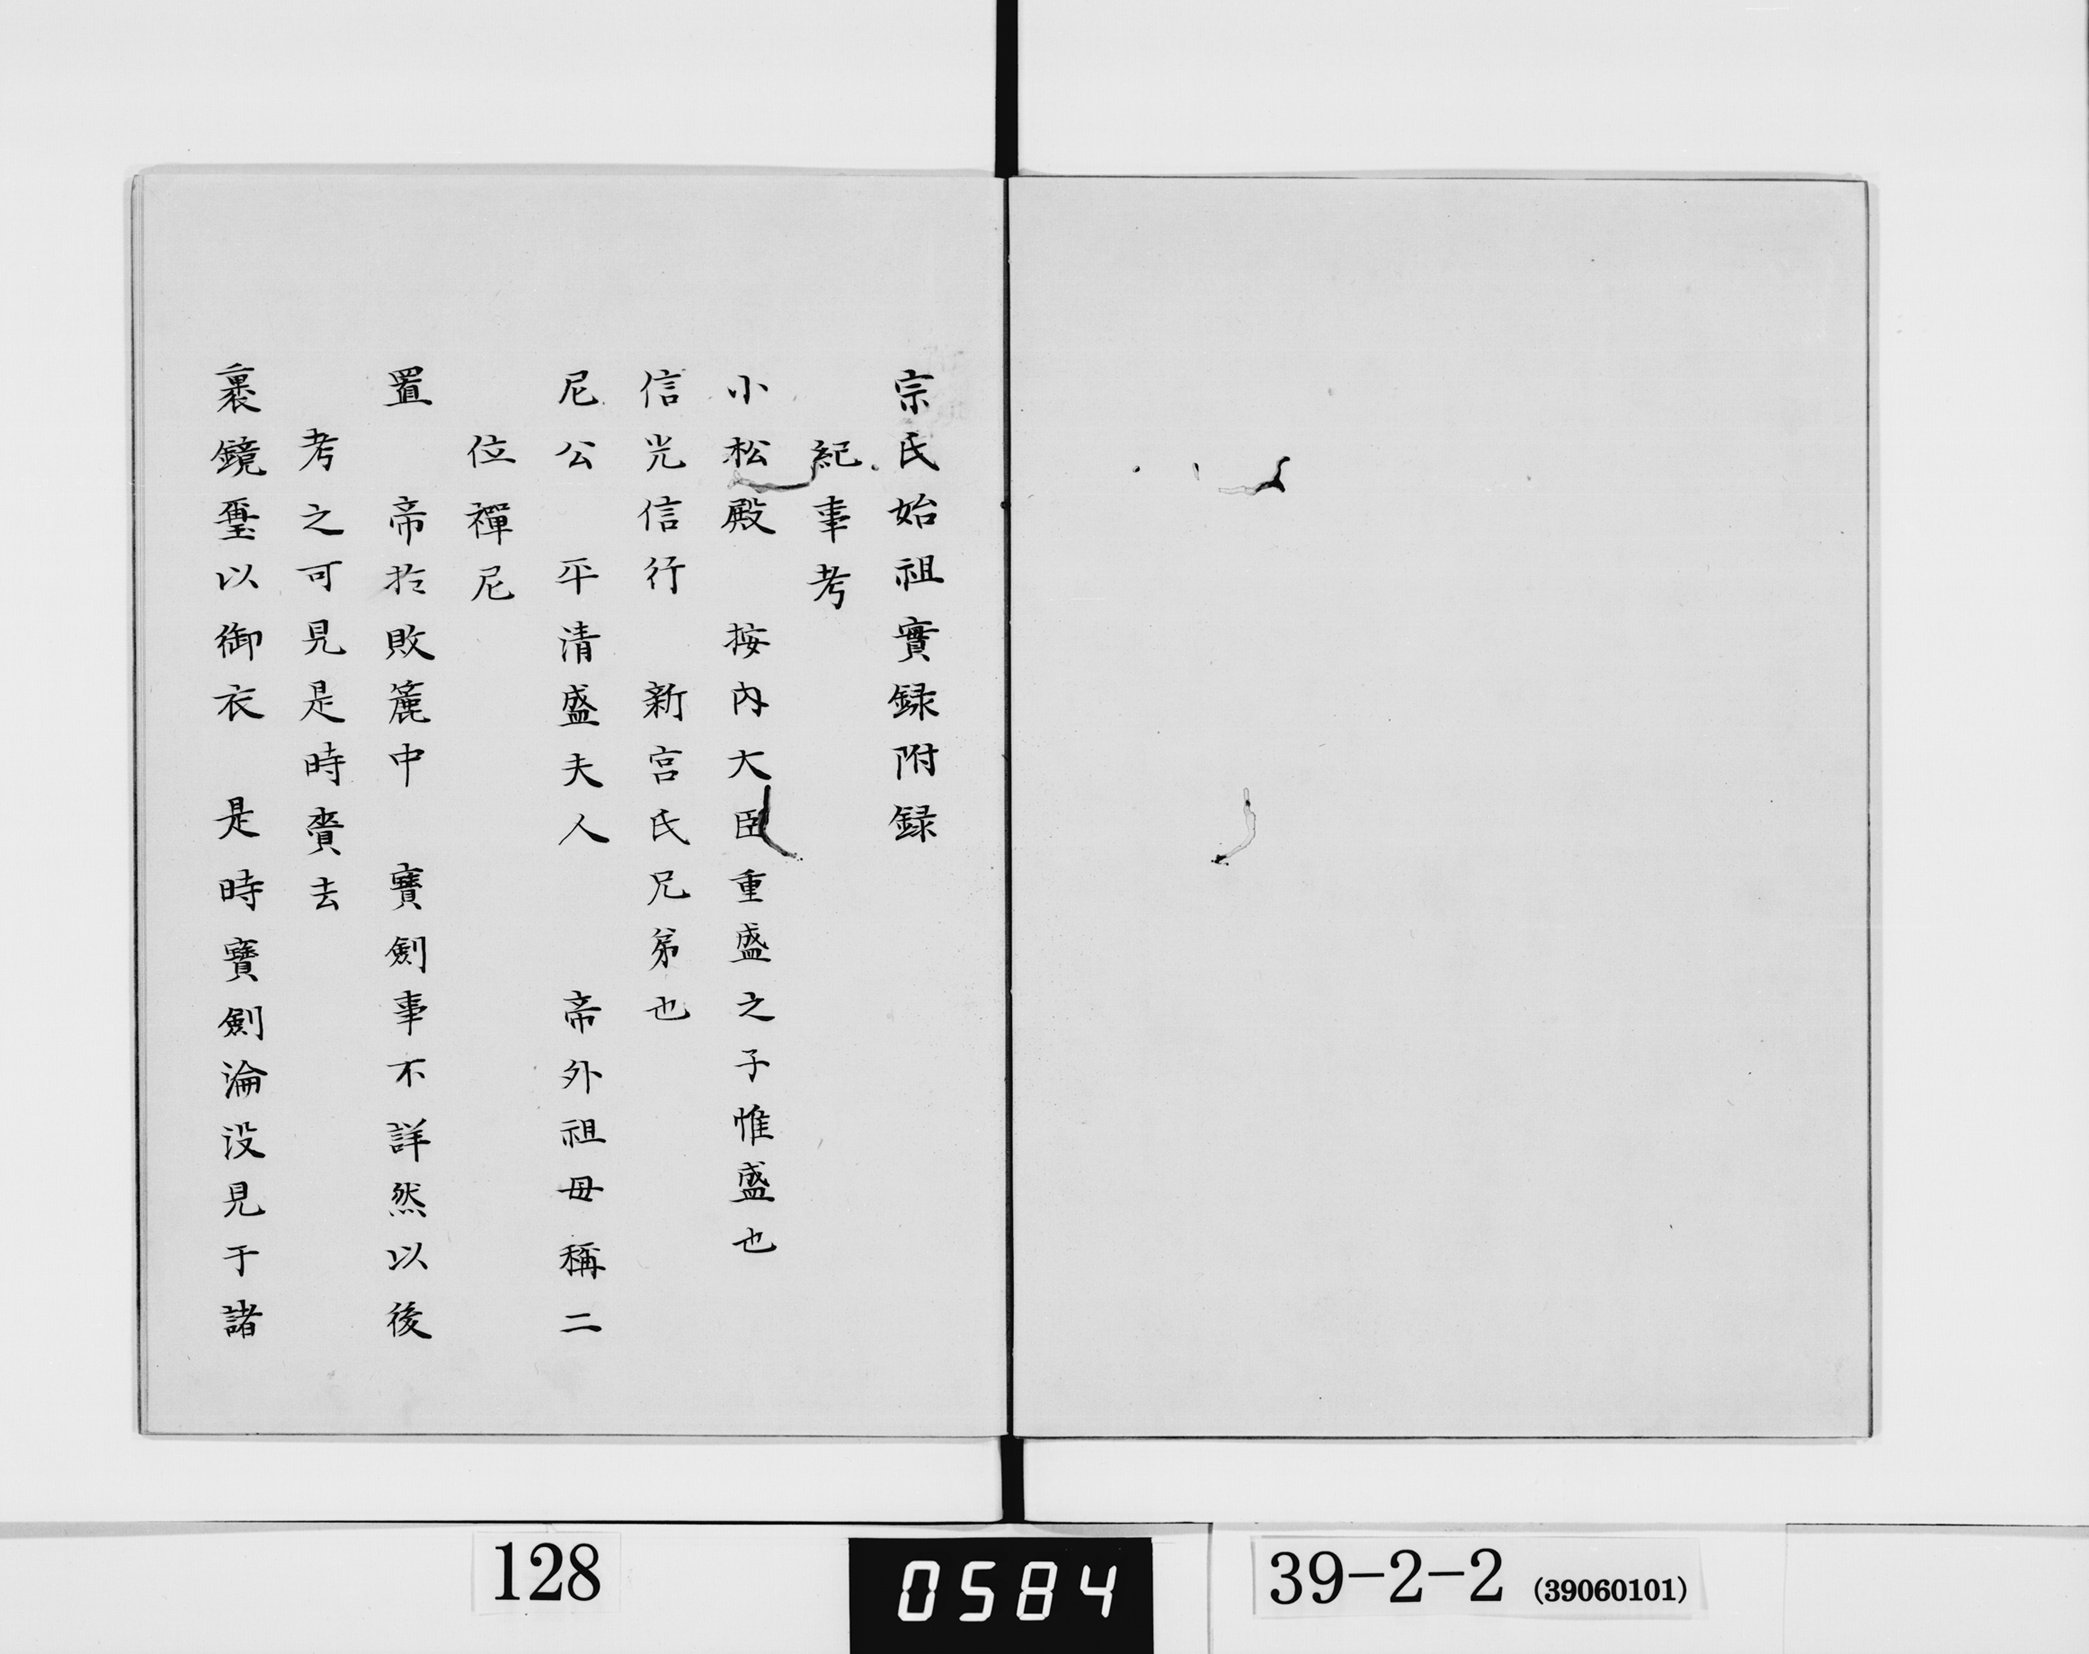 宗氏始祖實録附録
紀事考
小松殿　按内大臣重盛之子惟盛也
信光信行　新宮氏兄弟也
尼公　平清盛夫人　帝外祖母稱二
位禪尼
置　帝於敗簏中　寶劍事不詳然以後
考之可見是時賷去
裹鏡璽以御衣　是時寶劍淪没見于諸
128
0584
39-2-2 (39060101)